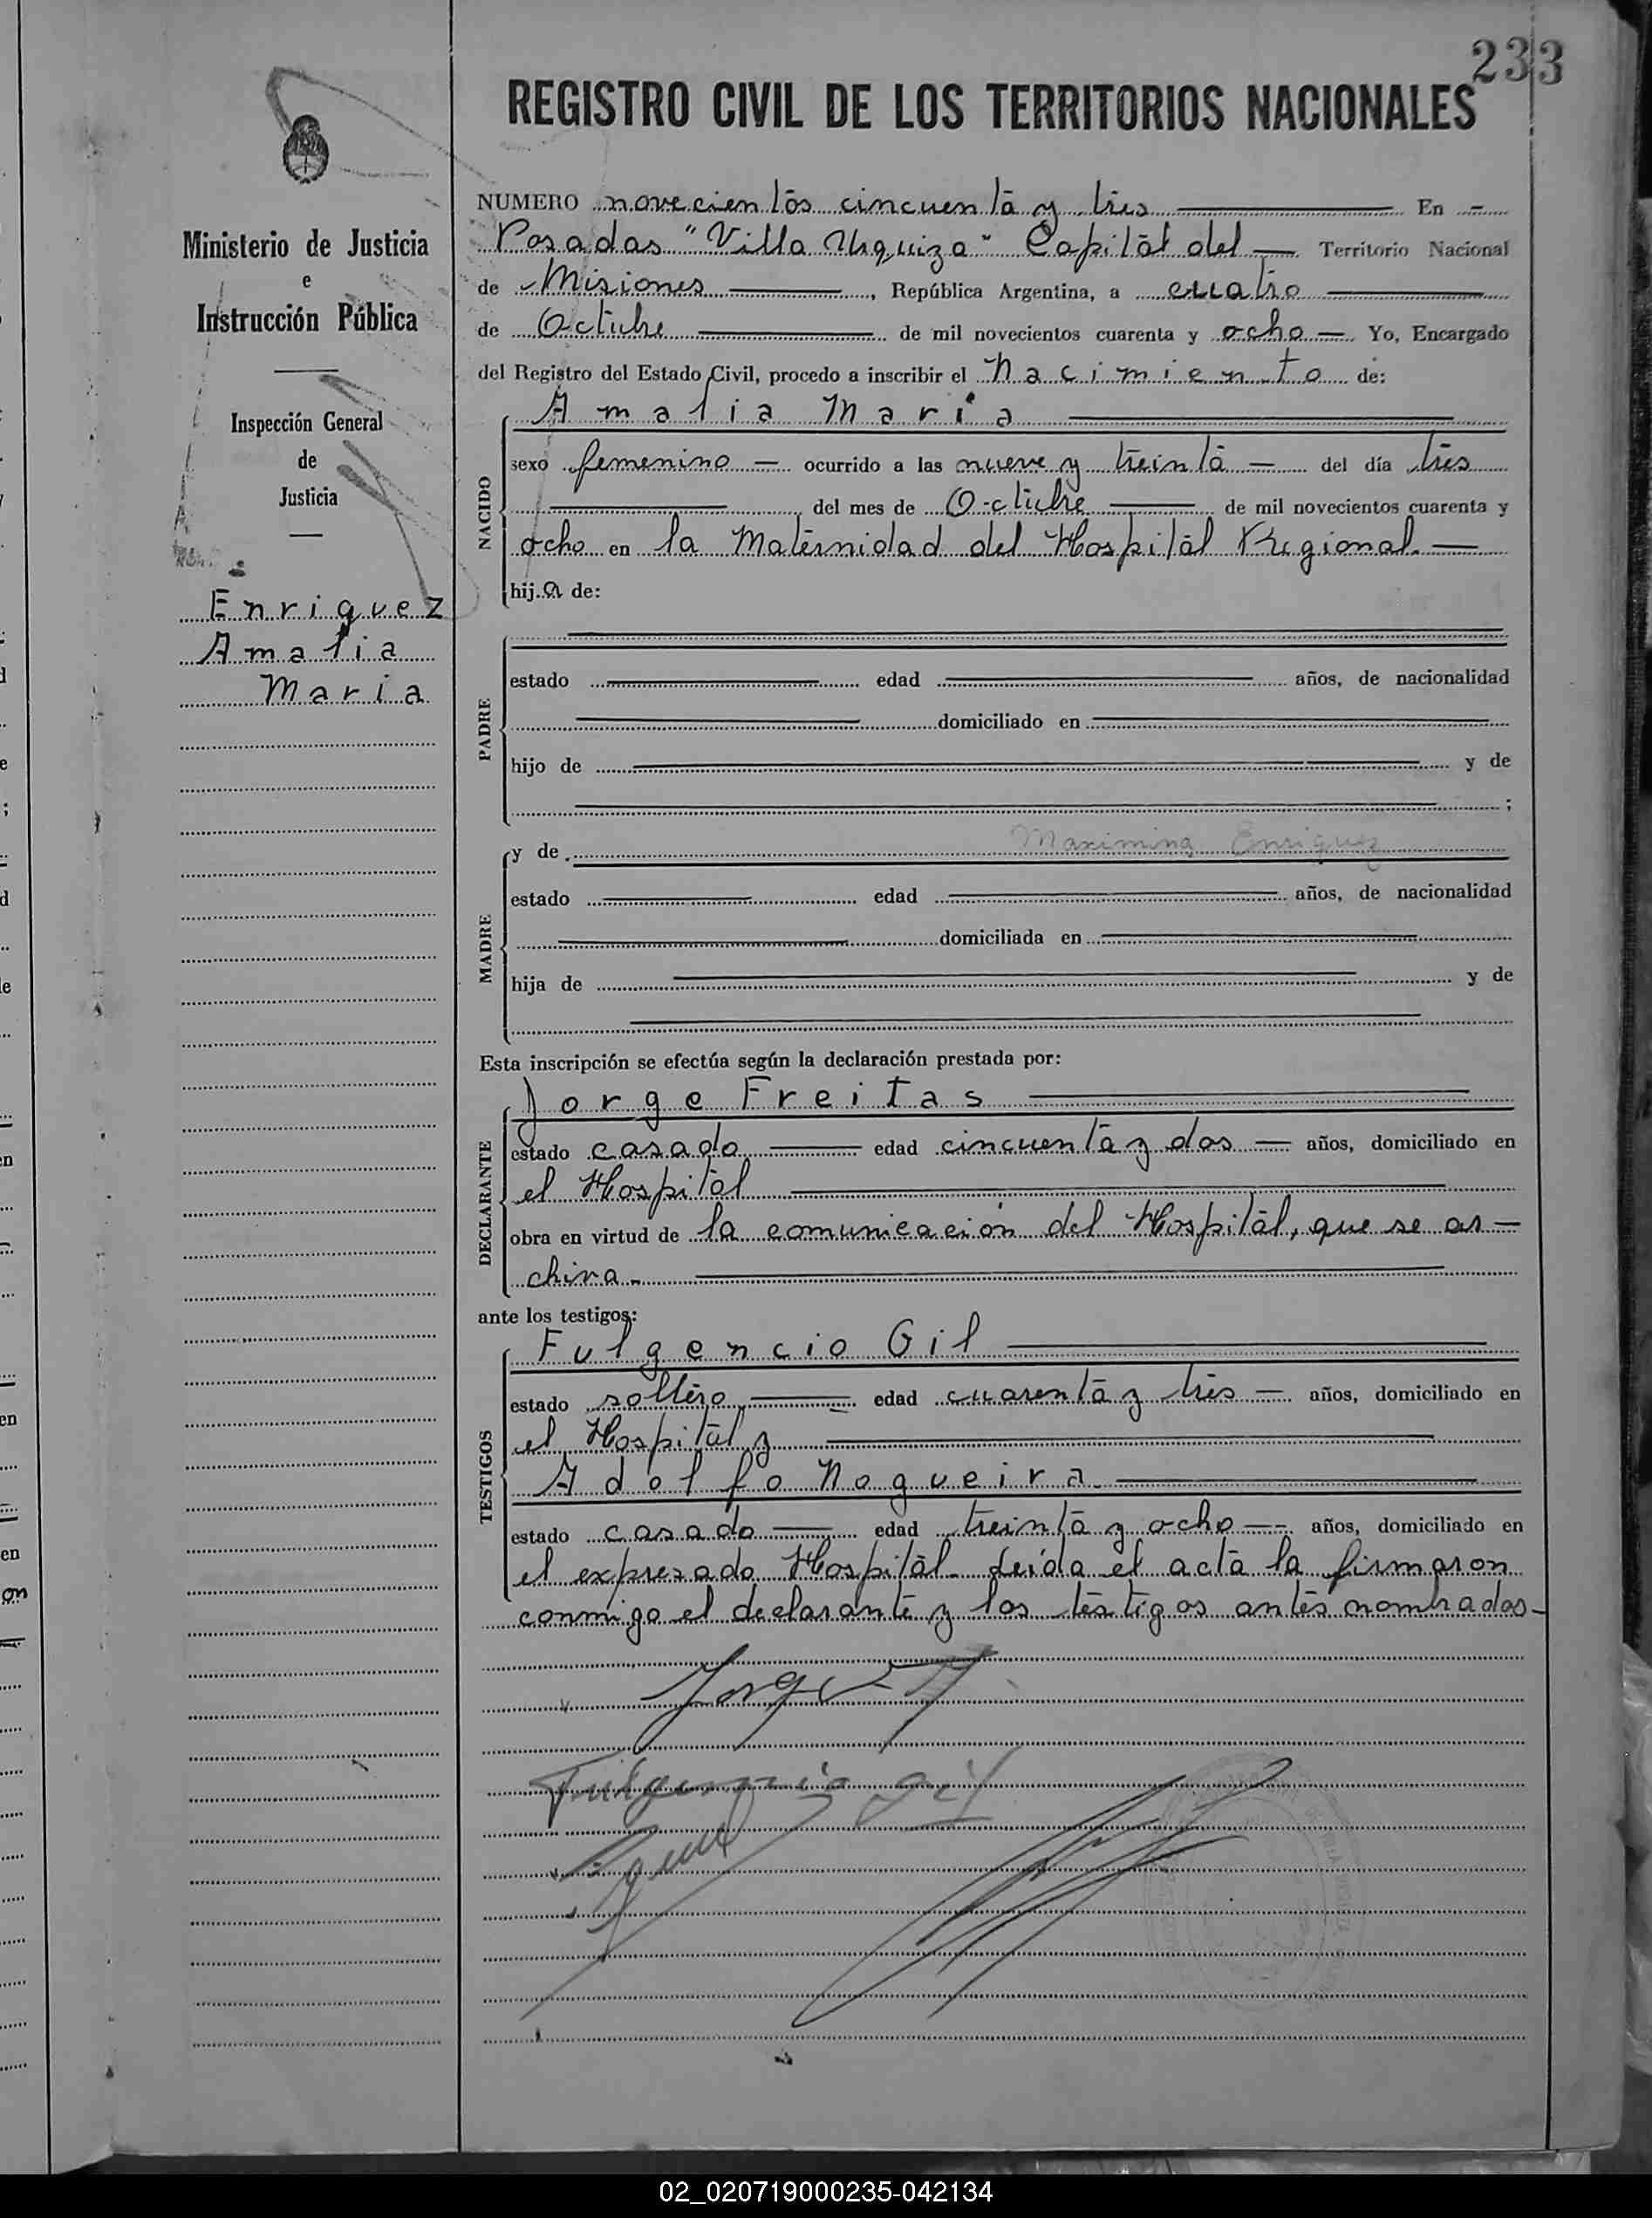 233
REGISTRO CIVIL DE LOS TERRITORIOS NACIONALES
Ministerio de Justicia
e
Instrucción Pública
Inspección General
de
Justicia
Enriquez
Amalia
Maria
NUMERO novecientos cincuenta y tres En
Posadas "Villa Urquiza" Capital del Territorio Nacional
de Misiones, República Argentina, a cuatro
de Octubre de mil novecientos cuarenta y ocho Yo, Encargado
del Registro del Estado Civil, procedo a inscribir el Nacimiento de:
Amalia Maria
NACIDO
sexo femenino ocurrido a las nueve y treinta del día tres
del mes de Octubre de mil novecientos cuarenta y
ocho en la Maternidad del Hospital Regional.
hija de:
PADRE
estado edad años, de nacionalidad
domiciliado en
hijo de y de
;
MADRE
y de Maximina Enriquez
estado edad años, de nacionalidad
domiciliada en
hija de y de
Esta inscripción se efectúa según la declaración prestada por:
DECLARANTE
Jorge Freitas
estado casado edad cincuenta y dos años, domiciliado en
el Hospital
obra en virtud de la comunicación del Hospital, que se ar-
chiva.
ante los testigos:
TESTIGOS
Fulgencio Gil
estado soltero edad cuarenta y tres años, domiciliado en
el Hospital y
Adolfo Nogueira
estado casado edad treinta y ocho años, domiciliado en
el expresado Hospital. Leída el acta la firmaron
conmigo el declarante y los testigos antes nombrados
Jorge
Fulgencio Gil
02_020719000235-042134